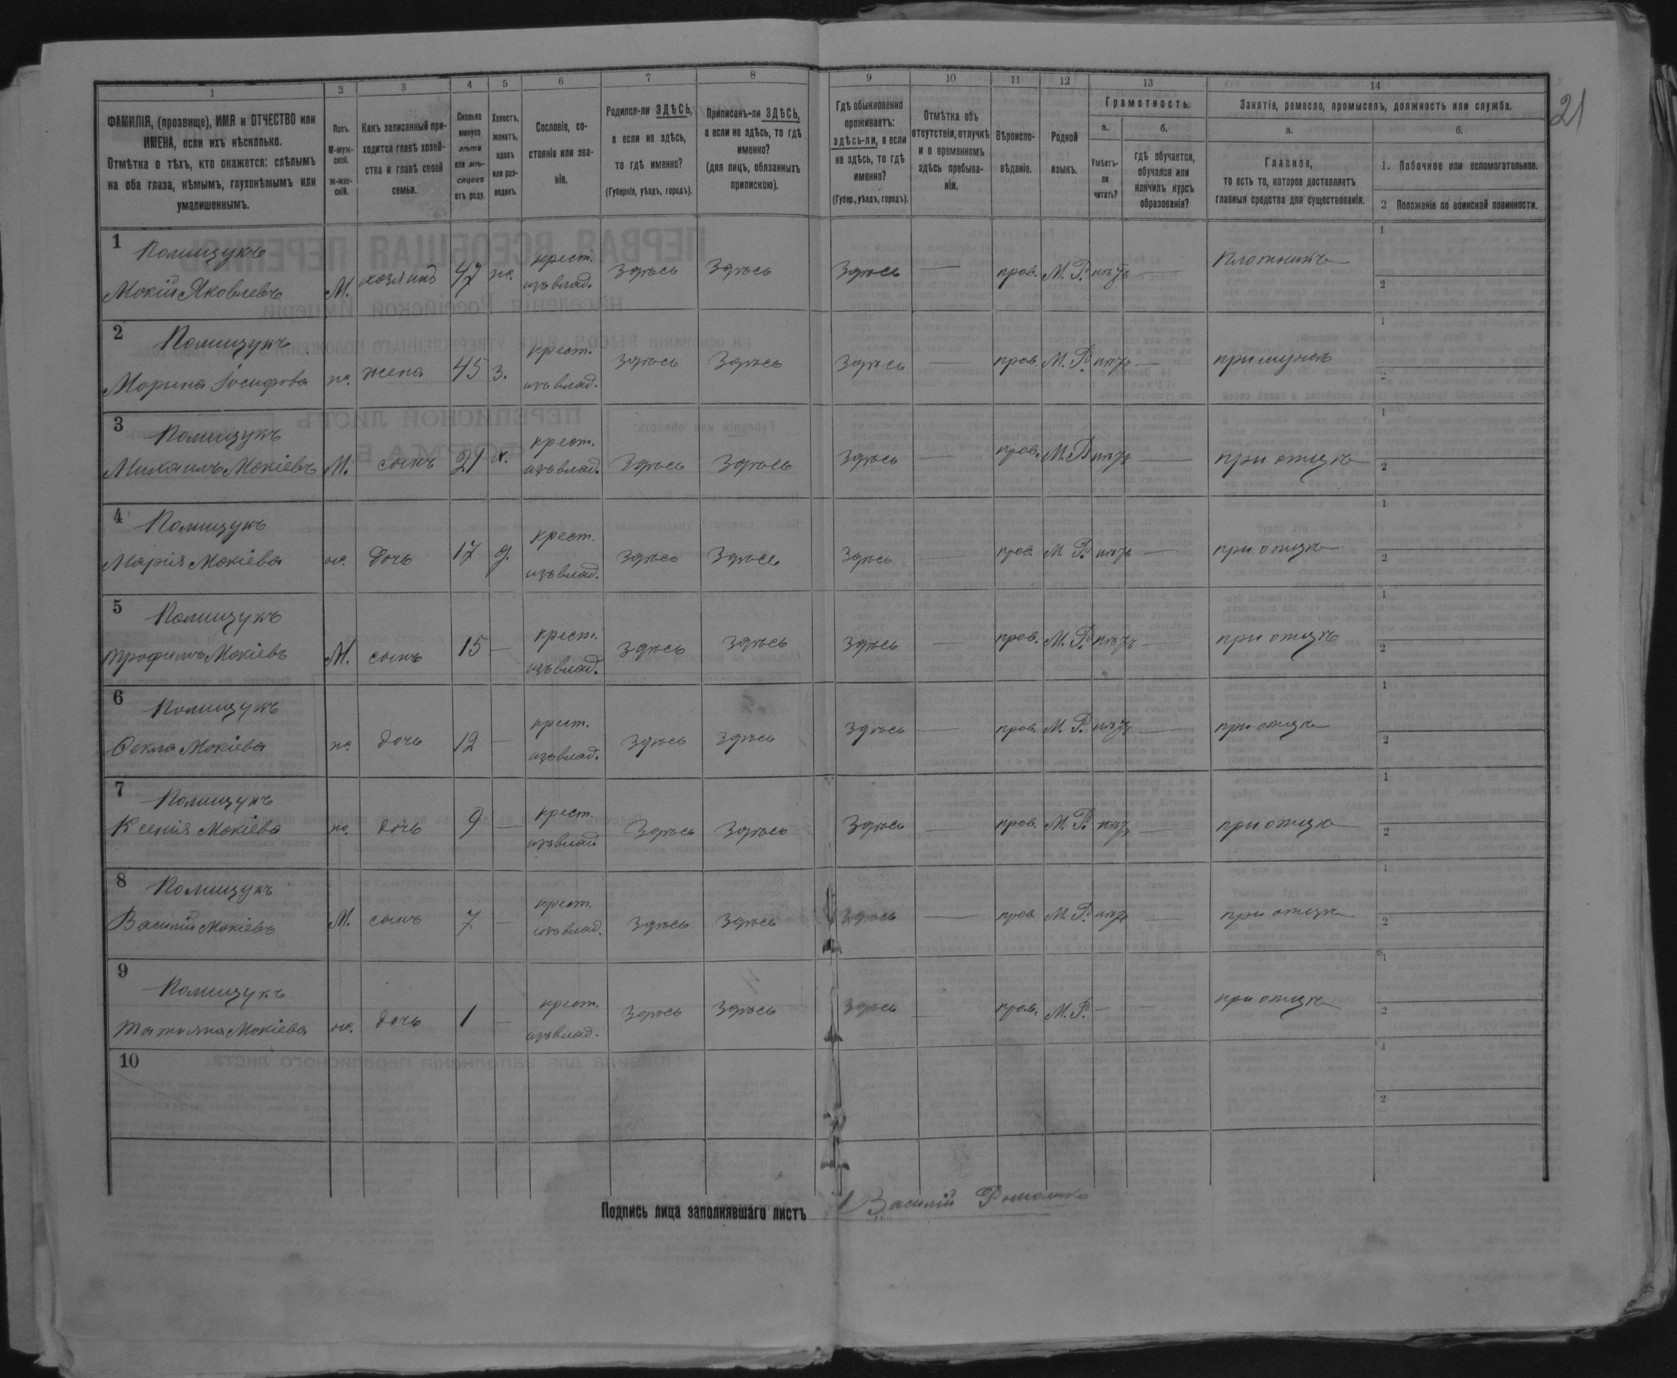 21
1 2 3 4 5 6 7 8 9 10 11 12 13 14
ФАМИЛІЯ, (прозвище), ИМЯ и ОТЧЕСТВО или
ИМЕНА, если ихъ нѣсколько.
Отмѣтка о тѣхъ, кто окажется: слѣпымъ
на оба глаза, нѣмымъ, глухонѣмымъ или
умалишеннымъ.
Полъ.
М-муж-
ской.
Ж-жен-
скій.
Какъ записанный при-
ходится главѣ хозяй-
ства и главѣ своей
семьи.
Сколько
минуло
лѣтъ
или мѣ-
сяцевъ
отъ роду.
Холостъ,
женатъ,
вдовъ
или раз-
веденъ.
Сословіе, со-
стояніе или зва-
ніе.
Родился-ли ЗДѢСЬ,
а если не здѣсь,
то гдѣ именно?
(Губернія, уѣздъ, городъ).
Приписанъ-ли ЗДѢСЬ,
а если не здѣсь, то гдѣ
именно?
(для лицъ, обязанныхъ
припискою).
Гдѣ обыкновенно
проживаетъ:
здѣсь-ли, а если
не здѣсь, то гдѣ
именно?
(Губер., уѣздъ, городъ).
Отмѣтка объ
отсутствіи, отлучкѣ
и о временномъ
здѣсь пребыва-
ніи.
Вѣроиспо-
вѣданіе.
Родной
языкъ.
Грамотность.
а.
Умѣетъ-
ли
читать?
б.
гдѣ обучается,
обучался или
кончилъ курсъ
образованія?
Занятія, ремесло, промыселъ, должность или служба.
а.
Главное,
то есть то, которое доставляетъ
главныя средства для существованія.
б.
1. Побочное или вспомогательное.
2 Положеніе по воинской повинности.
1 Полищукъ крест. 1
Мокій Яковлевъ М. хозяинъ 47 ж. изъ влад. Здѣсь Здѣсь Здѣсь — прав. М. Р. нѣтъ — Плотникъ 2
2 Полищукъ крест. 1
Марина Іосифова ж. жена 45 з. изъ влад. Здѣсь Здѣсь Здѣсь — прав. М. Р. нѣтъ — при мужѣ 2
3 Полищукъ крест. 1
Михаилъ Мокіевъ М. сынъ 21 х. изъ влад. Здѣсь Здѣсь Здѣсь — прав. М. Р. нѣтъ — при отцѣ 2
4 Полищукъ крест. 1
Марія Мокіева ж. дочь 17 д. изъ влад. Здѣсь Здѣсь Здѣсь — прав. М. Р. нѣтъ — при отцѣ 2
5 Полищукъ крест. 1
Трофимъ Мокіевъ М. сынъ 15 — изъ влад. Здѣсь Здѣсь Здѣсь — прав. М. Р. нѣтъ — при отцѣ 2
6 Полищукъ крест. 1
Ѳекла Мокіева ж. дочь 12 — изъ влад. Здѣсь Здѣсь Здѣсь — прав. М. Р. нѣтъ — при отцѣ 2
7 Полищукъ крест. 1
Ксенія Мокіева ж. дочь 9 — изъ влад Здѣсь Здѣсь Здѣсь — прав. М. Р. нѣтъ — при отцѣ 2
8 Полищукъ крест. 1
Василій Мокіевъ М. сынъ 7 — изъ влад. Здѣсь Здѣсь Здѣсь — прав. М. Р. нѣтъ — при отцѣ 2
9 Полищукъ крест. 1
Татьяна Мокіева ж. дочь 1 — изъ влад. Здѣсь Здѣсь Здѣсь — прав. М. Р. — — при отцѣ 2
10 1
2
Подпись лица заполнявшаго листъ Василій